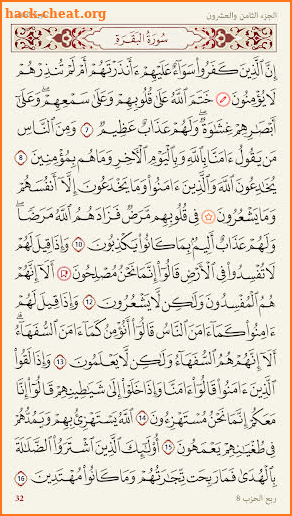 hack-cheat.org
الجزء الثامن والعشرون
سُورَةُ البَقَرَةِ
إِنَّ ٱلَّذِينَ كَفَرُواْ سَوَآءٌ عَلَيْهِمْ ءَأَنذَرْتَهُمْ أَمْ لَمْ تُنذِرْهُمْ
لَا يُؤْمِنُونَ خَتَمَ ٱللَّهُ عَلَىٰ قُلُوبِهِمْ وَعَلَىٰ سَمْعِهِمْۖ وَعَلَىٰٓ
أَبْصَٰرِهِمْ غِشَٰوَةٌۖ وَلَهُمْ عَذَابٌ عَظِيمٌ 7 وَمِنَ ٱلنَّاسِ
مَن يَقُولُ ءَامَنَّا بِٱللَّهِ وَبِٱلْيَوْمِ ٱلْأٓخِرِ وَمَا هُم بِمُؤْمِنِينَ 8
يُخَٰدِعُونَ ٱللَّهَ وَٱلَّذِينَ ءَامَنُواْ وَمَا يَخْدَعُونَ إِلَّآ أَنفُسَهُمْ
وَمَا يَشْعُرُونَ فِى قُلُوبِهِم مَّرَضٌ فَزَادَهُمُ ٱللَّهُ مَرَضًاۖ
وَلَهُمْ عَذَابٌ أَلِيمُۢ بِمَا كَانُواْ يَكْذِبُونَ 10 وَإِذَا قِيلَ لَهُمْ
لَا تُفْسِدُواْ فِى ٱلْأَرْضِ قَالُوٓاْ إِنَّمَا نَحْنُ مُصْلِحُونَ أَلَآ إِنَّهُمْ
هُمُ ٱلْمُفْسِدُونَ وَلَٰكِن لَّا يَشْعُرُونَ 12 وَإِذَا قِيلَ لَهُمْ
ءَامِنُواْ كَمَآ ءَامَنَ ٱلنَّاسُ قَالُوٓاْ أَنُؤْمِنُ كَمَآ ءَامَنَ ٱلسُّفَهَآءُۗ
أَلَآ إِنَّهُمْ هُمُ ٱلسُّفَهَآءُ وَلَٰكِن لَّا يَعْلَمُونَ 13 وَإِذَا لَقُواْ
ٱلَّذِينَ ءَامَنُواْ قَالُوٓاْ ءَامَنَّا وَإِذَا خَلَوْاْ إِلَىٰ شَيَٰطِينِهِمْ قَالُوٓاْ إِنَّا
مَعَكُمْ إِنَّمَا نَحْنُ مُسْتَهْزِءُونَ 14 ٱللَّهُ يَسْتَهْزِئُ بِهِمْ وَيَمُدُّهُمْ
فِى طُغْيَٰنِهِمْ يَعْمَهُونَ 15 أُوْلَٰٓئِكَ ٱلَّذِينَ ٱشْتَرَوُاْ ٱلضَّلَٰلَةَ
بِٱلْهُدَىٰ فَمَا رَبِحَت تِّجَٰرَتُهُمْ وَمَا كَانُواْ مُهْتَدِينَ 16
ربع الحزب 8
32
hack-cheat.org